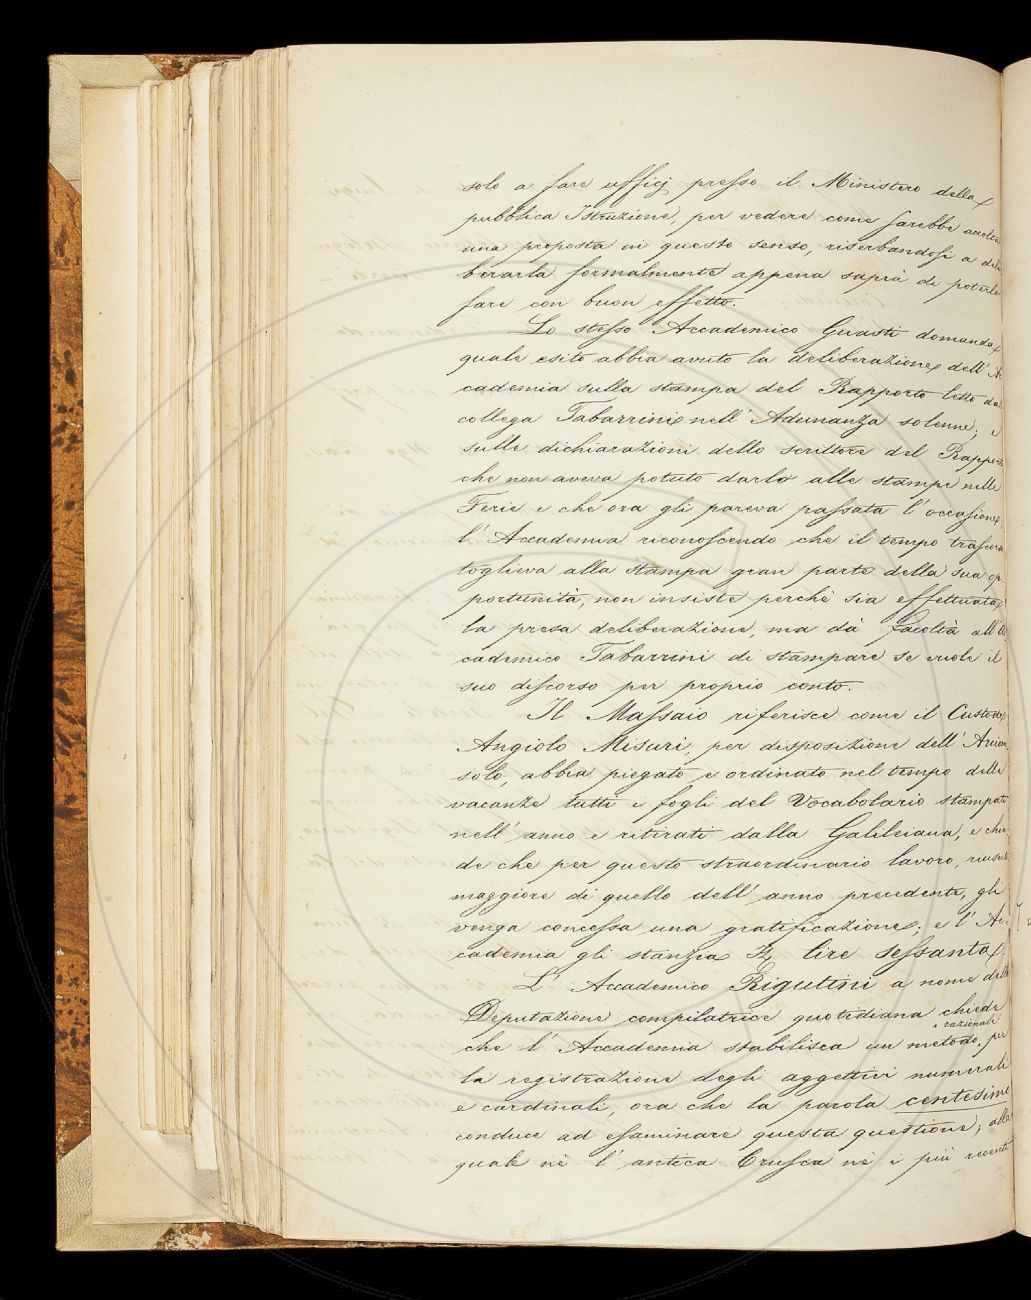 solo a fare ufficj presso il Ministero della
pubblica Istruzione, per vedere come sarebbe accolta
una proposta in questo senso, riserbandosi a deli
berarla formalmente appena saprà di poterlo
fare con buon effetto.
Lo stesso Accademico Guasti domanda
quale esito abbia avuto la deliberazione dell' Ac
cademia sulla stampa del Rapporto letto dal
collega Tabarrini nell' Adunanza solenne; e
sulle dichiarazioni dello scrittore del Rapporto
che non aveva potuto darlo alle stampe nelle
Ferie e che ora gli pareva passata l' occasione,
l' Accademia riconoscendo che il tempo trascorso
toglieva alla stampa gran parte della sua op
portunità, non insiste perchè sia effettuata
la presa deliberazione, ma dà facoltà all' Ac
cademico Tabarrini di stampare se vuole il
suo discorso per proprio conto.
Il Massaio riferisce come il Custode
Angiolo Misuri, per disposizione dell' Arcicon
solo, abbia piegato e ordinato nel tempo delle
vacanze tutti i fogli del Vocabolario stampati
nell' anno e ritirati dalla Galileiana, e chie
de che per questo straordinario lavoro, riuscito
maggiore di quello dell' anno precedente, gli
venga concessa una gratificazione; e l' Ac
cademia gli stanzia lire sessanta.
L' Accademico Rigutini a nome della
Deputazione compilatrice quotidiana chiede
che l' Accademia stabilisca un metodo razionale per
la registrazione degli aggettivi numerali
e cardinali, ora che la parola centesimo
conduce ad esaminare questa questione; alla
quale nè l' antica Crusca nè i più recenti